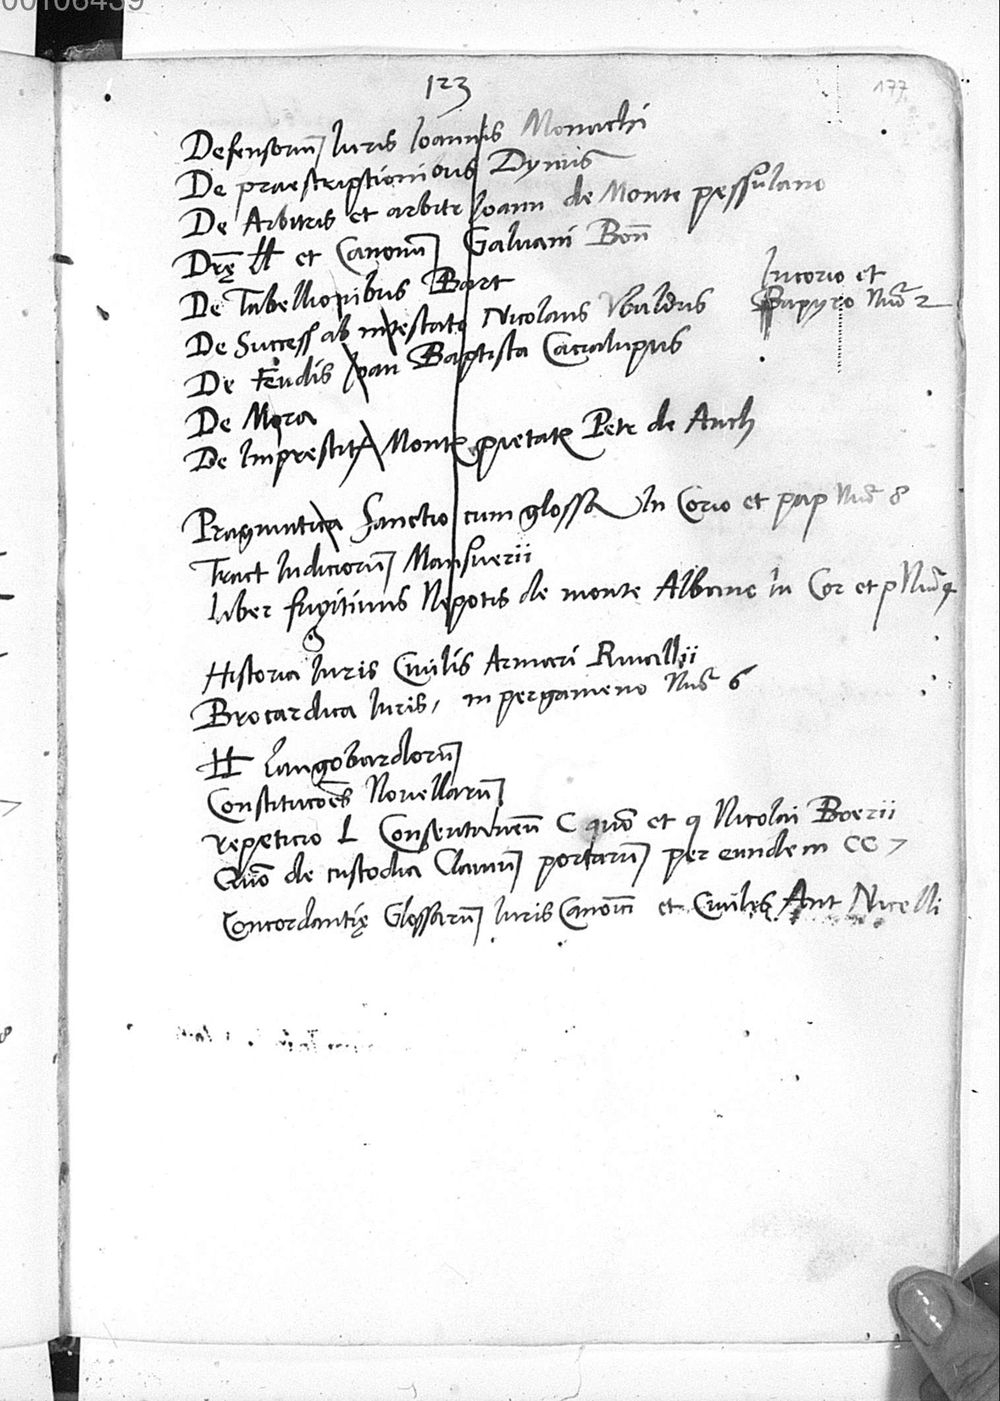 00106439
123
177
Defensoriũ Iuris Ioannis Monachi
De praescriptionibus Dynus
De Arbitris et arbitr Ioann de Monte pessulano
Drẽ ll et Canonũ Galuani Bon̄
De Tabellionibus Bart
In corio et
De Success ab intestato Nicolaus Vbaldus Papyro Nũ 2
De Feudis Ioan Baptista Caccialupus
De Mora
De Imprestit Montꝭ pietatꝭ Petr de Anch
Pragmatica Sanctio cum glossa In Corio et pap Nũ 8
Tract Iudiciorũ Mansuerii
Liber fugitiuus Nepotis de monte Albano in Cor et p Nũ 4
Historia Iuris Ciuilis Aymari Riuallii
Brocardica Iuris, in pergameno Nũ 6
ll Langobardorũ
Constitucoẽs Nouellarũ
repeticio L Consentaneũ C quõ et q Nicolai Boerii
Quõ de custodia Clauiũ portarũ per eundem CC 7
Concordantię Glossarũ Iuris Canonici et Ciuiles Ant Nicelli